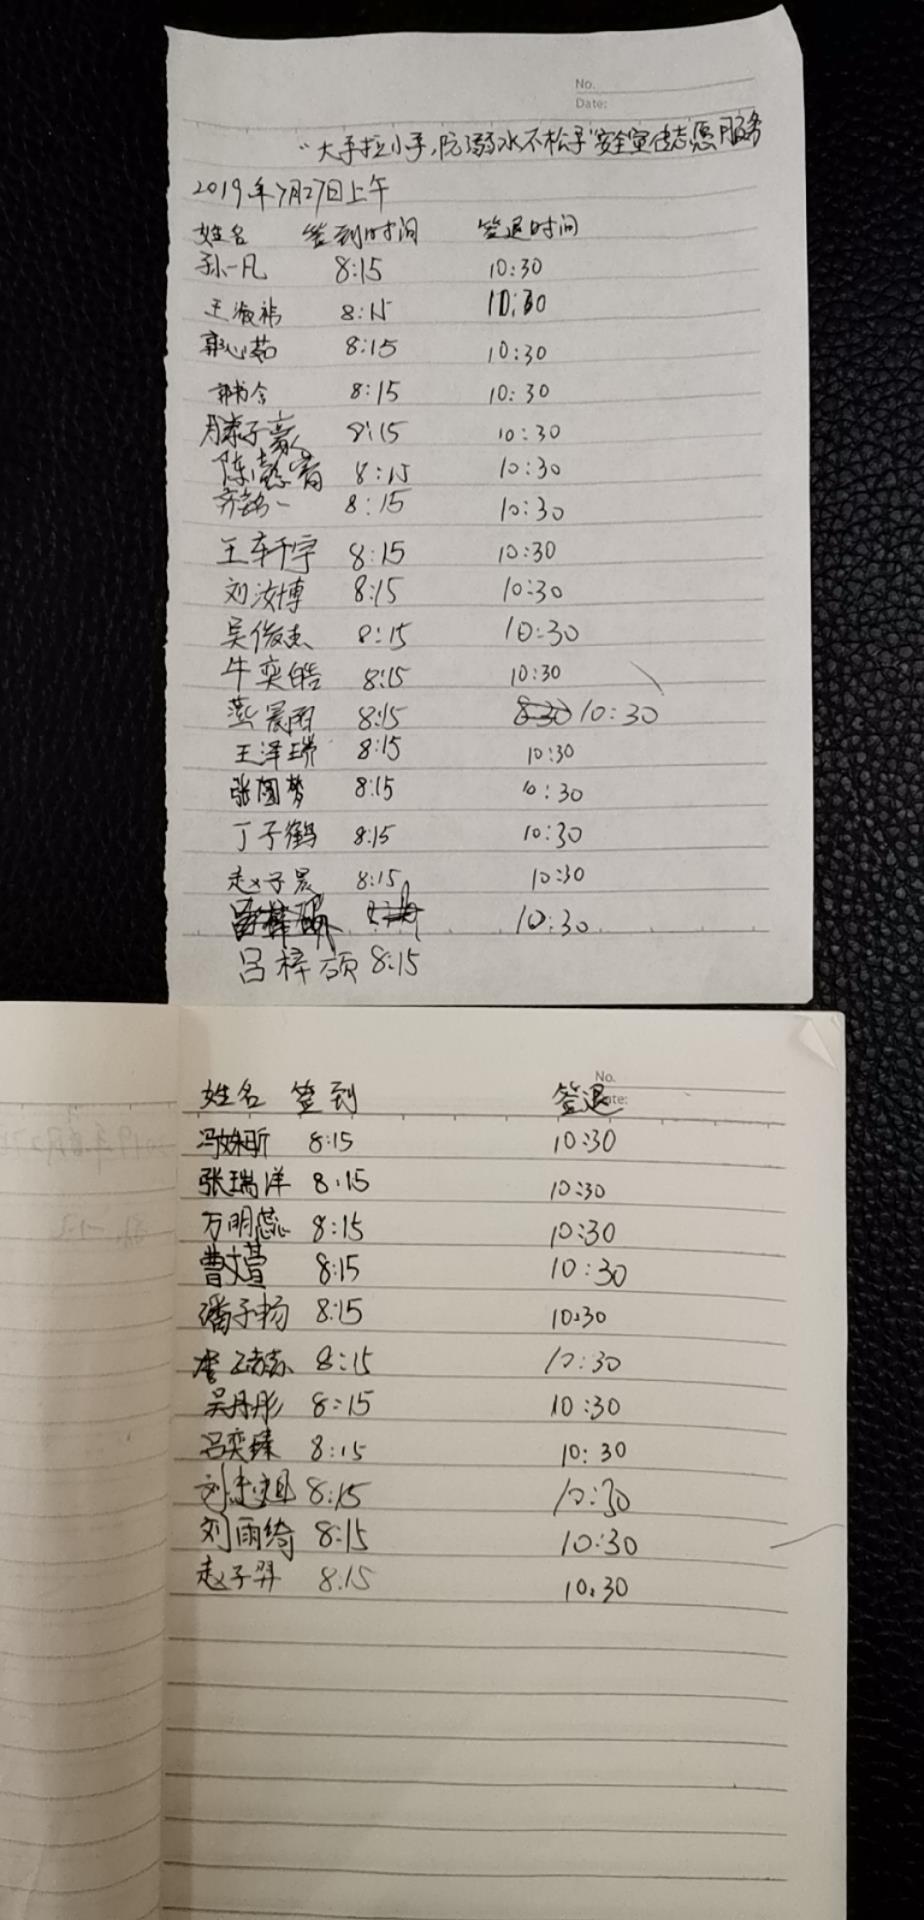 No.
Date:
“大手拉小手,防溺水不松手”安全宣传志愿服务
2019年7月27日上午
姓名 签到时间 签退时间
孙一凡 8:15 10:30
王淑祎 8:15 10:30
郭心茹 8:15 10:30
8:15 10:30
滕子豪 8:15 10:30
陈懿睿 8:15 10:30
齐铭一 8:15 10:30
王车干宇 8:15 10:30
刘汝博 8:15 10:30
吴俊杰 8:15 10:30
牛奕皓 8:15 10:30
燕晨雨 8:15 10:30
王泽瑞 8:15 10:30
张圆梦 8:15 10:30
丁子鹤 8:15 10:30
赵子晨 8:15 10:30
10:30
吕梓硕 8:15
No.
姓名 签到 签退
冯姝昕 8:15 10:30
张瑞洋 8:15 10:30
万明蕊 8:15 10:30
曹文萱 8:15 10:30
潘子扬 8:15 10:30
8:15 10:30
吴丹彤 8:15 10:30
吕奕臻 8:15 10:30
刘 8:15 10:30
刘雨绮 8:15 10:30
赵子羿 8:15 10:30